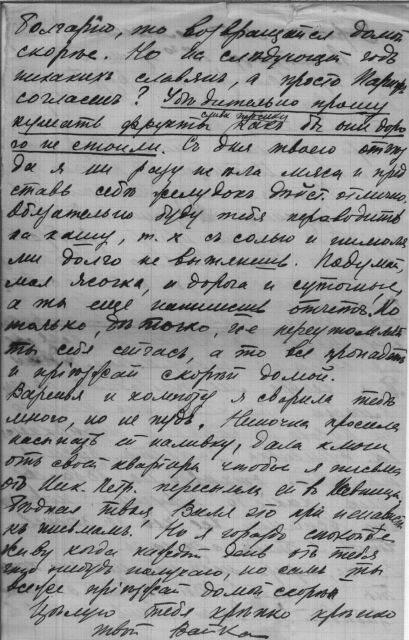 Болгарію, то возвращайся домой
скорѣе. Но на слѣдующій годъ
никакихъ славянъ, а просто Парижъ
согласенъ? Убѣдительно прошу
сливы персики
кушать фрукты какъ бы они доро
го не стоили. Съ дня твоего отъѣз
да я ни разу не ѣла мяса и пред
ставь себѣ желудокъ дѣйст. отлично.
Обязательно буду тебя переводить
на кашу, т. к. съ солью и
ми долго не вытянешь. Подумай,
моя и дорога и суточные,
а ты еще напишешь отчетъ. Но
только, Не переутомляй
ты себя сейчасъ, а то все пропадетъ
и пріѣзжай скорѣй домой.
Варенья и компоту я сварила тебѣ
много, но не пудъ. Ниночка просила
ей наливку, дала ключи
отъ своей квартиры чтобы я письма
отъ Ник. Петр. пересылала ей въ
бѣдная твоя, Валя это при ненависти
къ письмамъ. Но я гораздо спокойнѣе
живу когда каждый день отъ тебя
что нибудь получаю, но самъ ты
все же пріѣзжай домой скорѣе
Цѣлую тебя крѣпко крѣпко
твоя